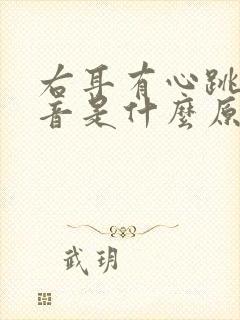 右耳有心跳
音是什麼原
武玥